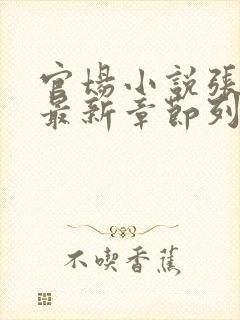 官場小説張
最新章節列
不喫香蕉